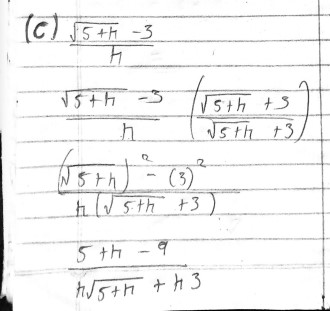 (c) (√(5+h) -3)/h
(√(5+h) -3)/h ((√(5+h) +3)/(√(5+h) +3))
((√(5+h))² - (3)²)/(h(√(5+h) +3))
(5+h -9)/(h√(5+h) + h3)